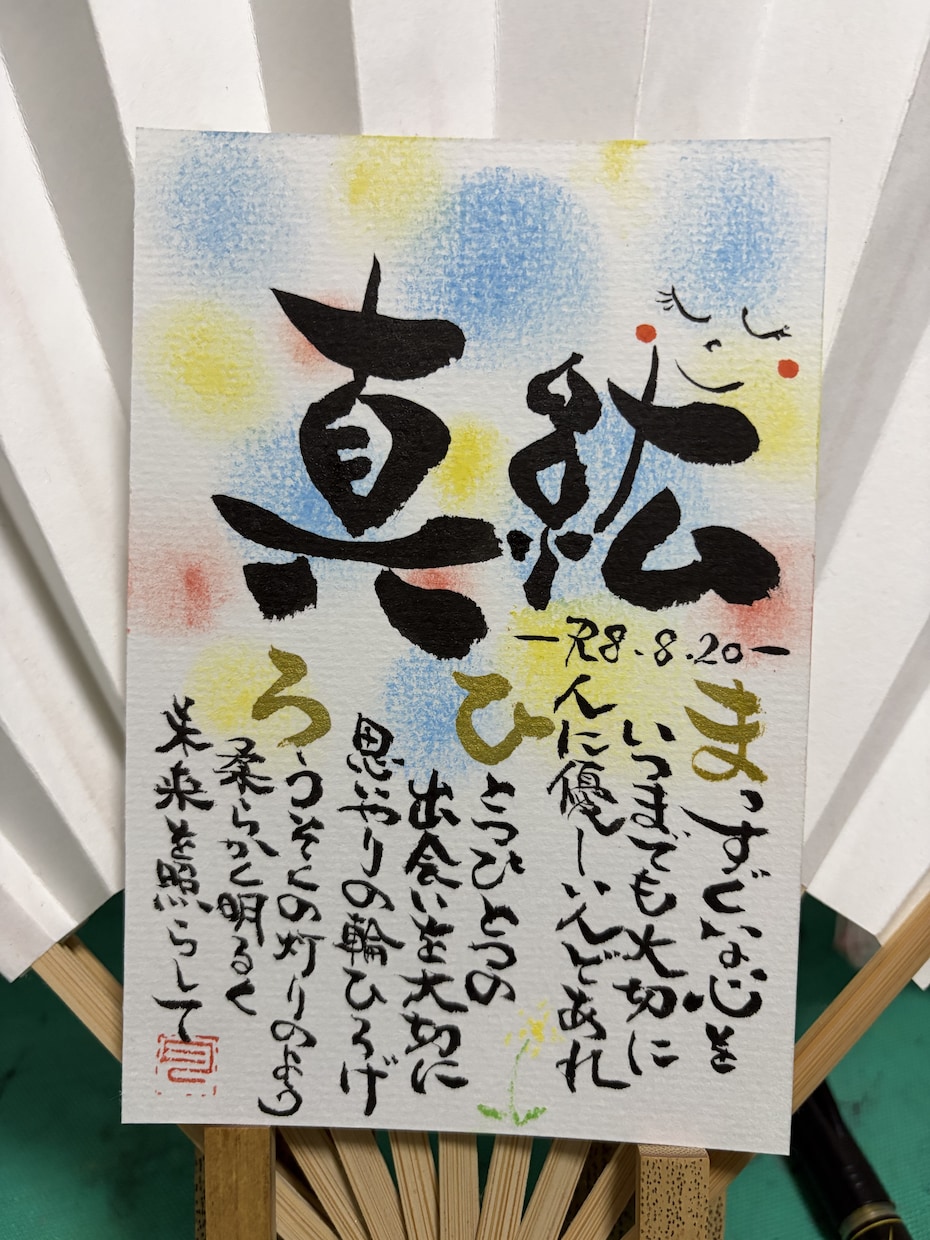 真紘
－R8.8.20－
まっすぐな心を
いつまでも大切に
人に優しい人であれ
ひとつひとつの
出会いを大切に
思いやりの輪ひろげ
ろうそくの灯りのよう
柔らかく明るく
未来を照らして